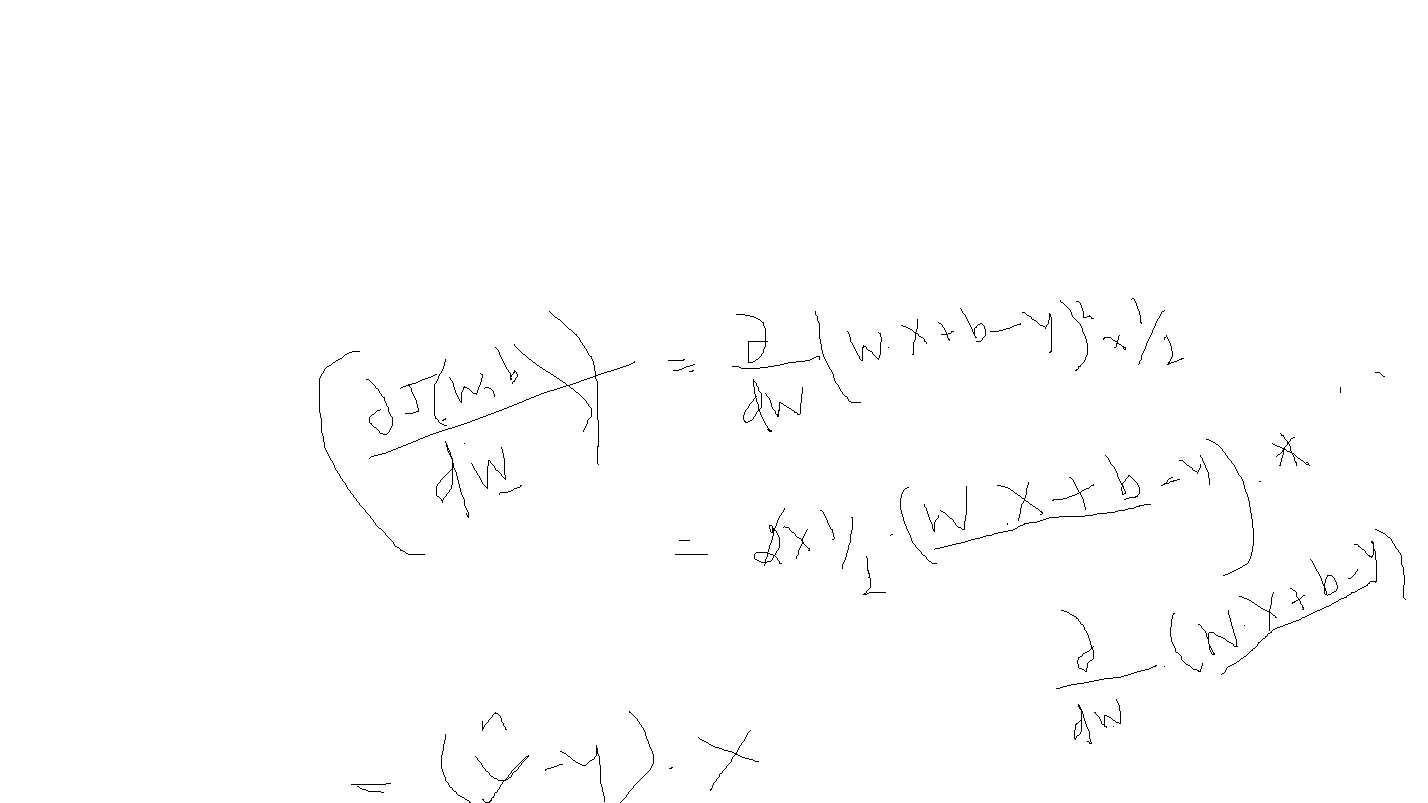 (∂J(w,b)/∂W) = ∂/∂W (W.X+b-y)² × 1/2
= 2×1/2 . (W.X+b-y) . *
∂/∂W . (W.X+b-y)
= (ŷ-y) . X